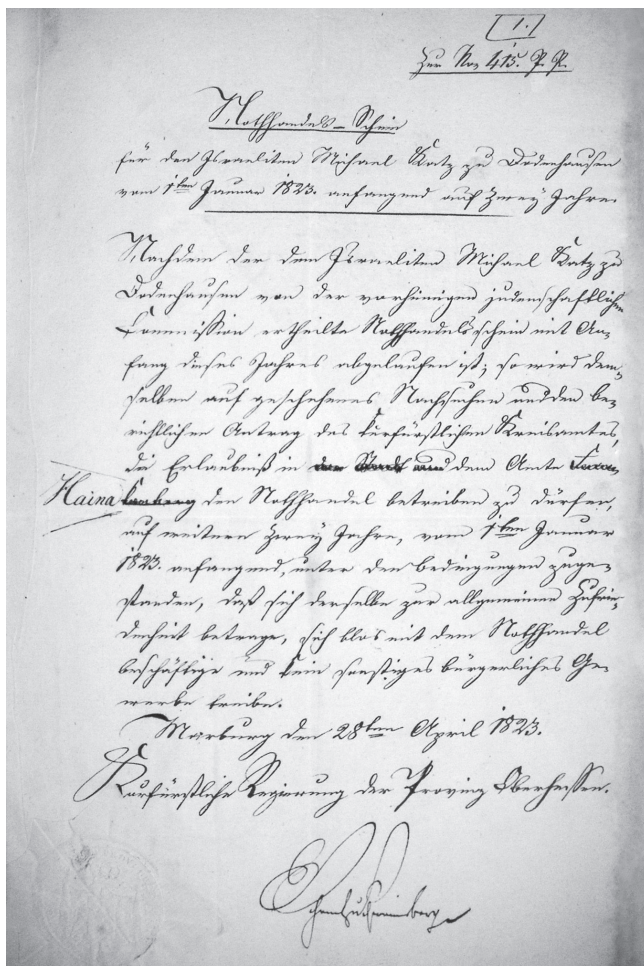 1.
Zur No. 415. P. P.
Nothhandels-Schein
für den Israeliten Michael Katz zu Dodenhausen
vom 1ten Januar 1823. anfangend auf zwey Jahre.
Nachdem der dem Israeliten Michael Katz zu
Dodenhausen von der vorhinnigen judenschaftlichen
Commission ertheilte Nothhandelsschein mit An-
fang dieses Jahres abgelaufen ist; so wird dem-
selben auf geschehenes Nachsuchen und den be-
richtlichen Antrag des kurfürstlichen Kreisamtes,
die Erlaubniß in der Stadt und dem Amte
Haina den Nothhandel betreiben zu dürfen,
auf weitere zwey Jahre, vom 1ten Januar
1823. anfangend, unter den Bedingungen zuge-
standen, daß sich derselbe zur allgemeinen Zufrie-
denheit betrage, sich blos mit dem Nothhandel
beschäftige und kein sonstiges bürgerliches Ge-
werbe treibe.
Marburg den 28ten April 1823.
Kurfürstliche Regierung der Provinz Oberhessen.